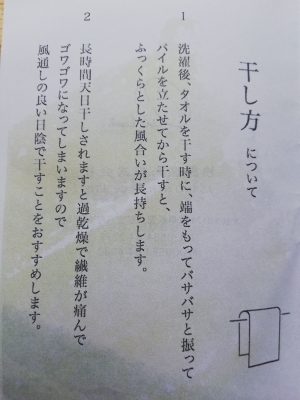 干し方 について
1
洗濯後、タオルを干す時に、端をもってバサバサと振って
パイルを立たせてから干すと、
ふっくらとした風合いが長持ちします。
2
長時間天日干しされますと過乾燥で繊維が痛んで
ゴワゴワになってしまいますので
風通しの良い日陰で干すことをおすすめします。